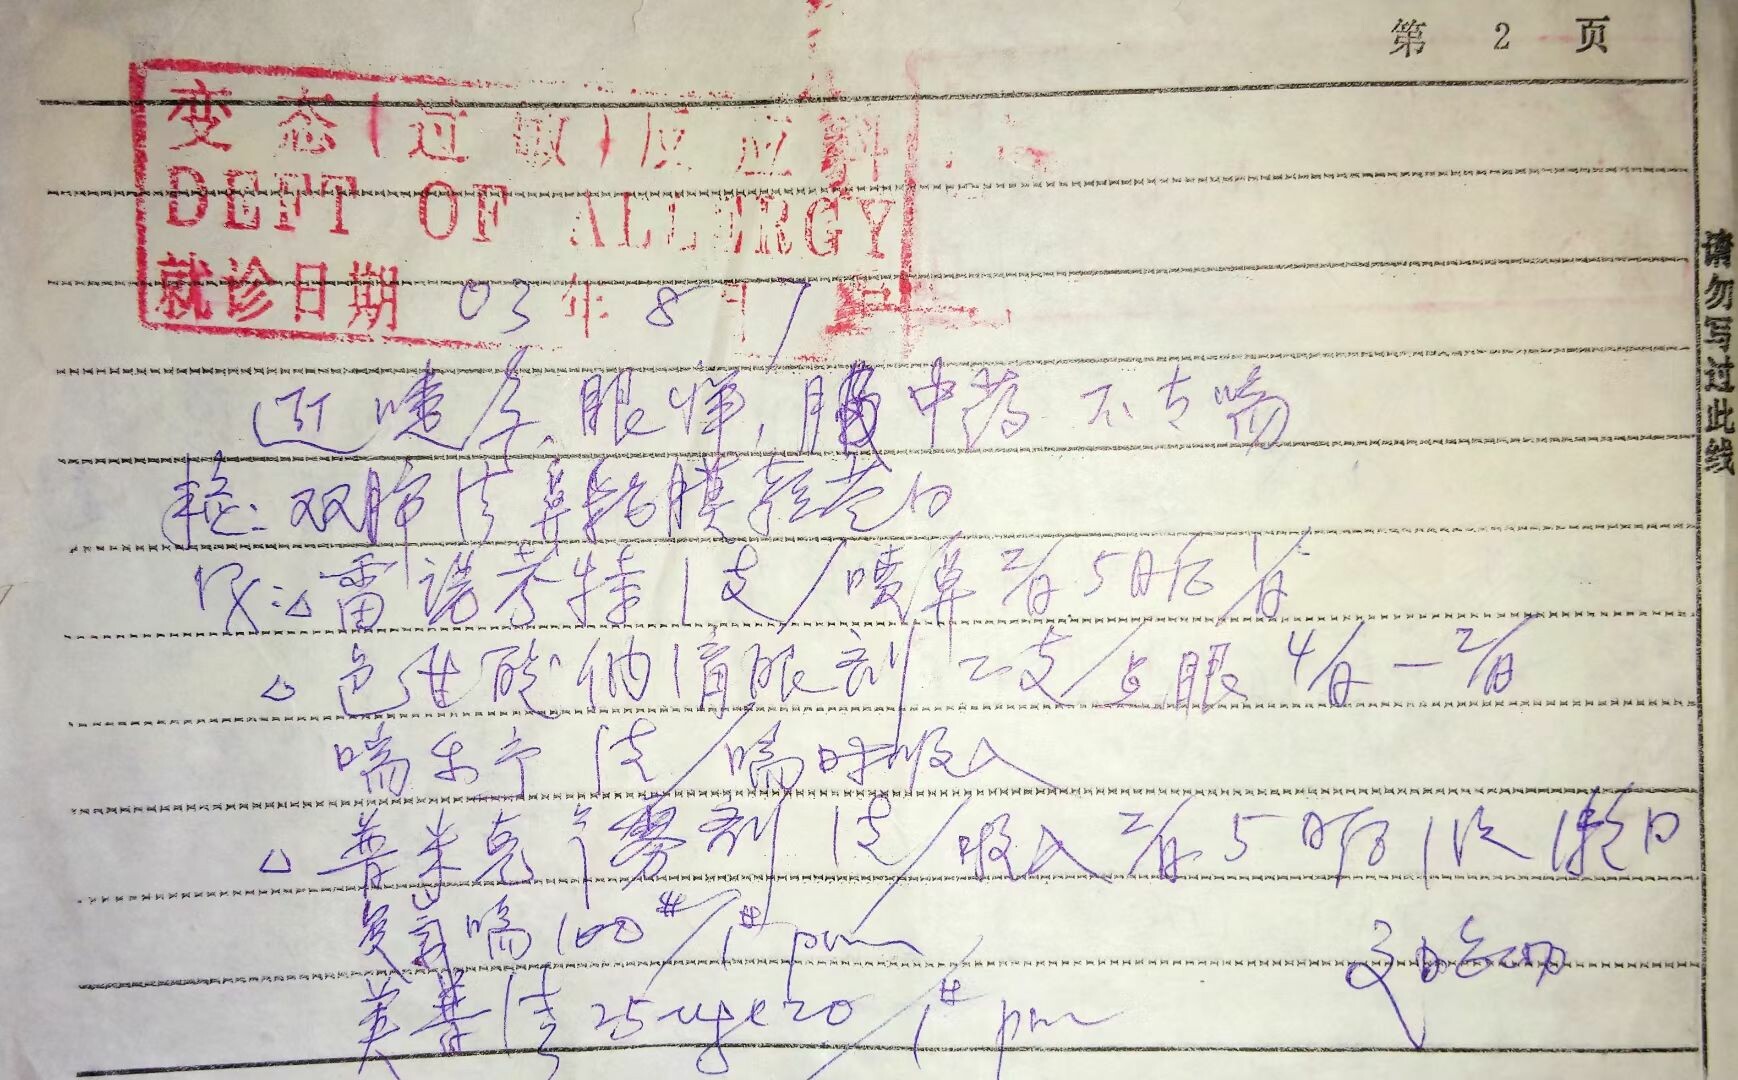 第 2 页
变态(过敏)反应科
DEPT OF ALLERGY
就诊日期 03 年 8 7
近 眼痒, 服中药 不 喘
双肺清 鼻粘膜 苍白
Rx: △ 雷诺考特 1支/喷鼻 2/日 5日后 1/日
△ 色甘酸钠滴眼剂 二支/点眼 4/日 — 2/日
喘乐宁 1支/喘时吸入
△ 普米克气雾剂 1支/吸入 2/日 5日后 1次 1日
喘 100#/1# prn
25ug×20/1# prn
请勿写过此线